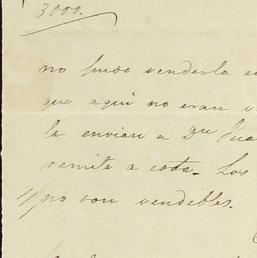 3000.
no puse venderla en
que aqui no eran
la envian a Dn Jua
remite a esta. Los
no son vendibles.